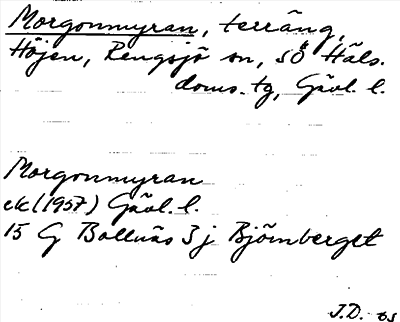 Morgonmyran, terräng,
Höjen, Rengsjö sn, sö Häls.
doms. tg, Gävl. l.
Morgonmyran
ek (1957) Gävl. l.
15 G Bollnäs 3 j Björnberget
J.D. 65